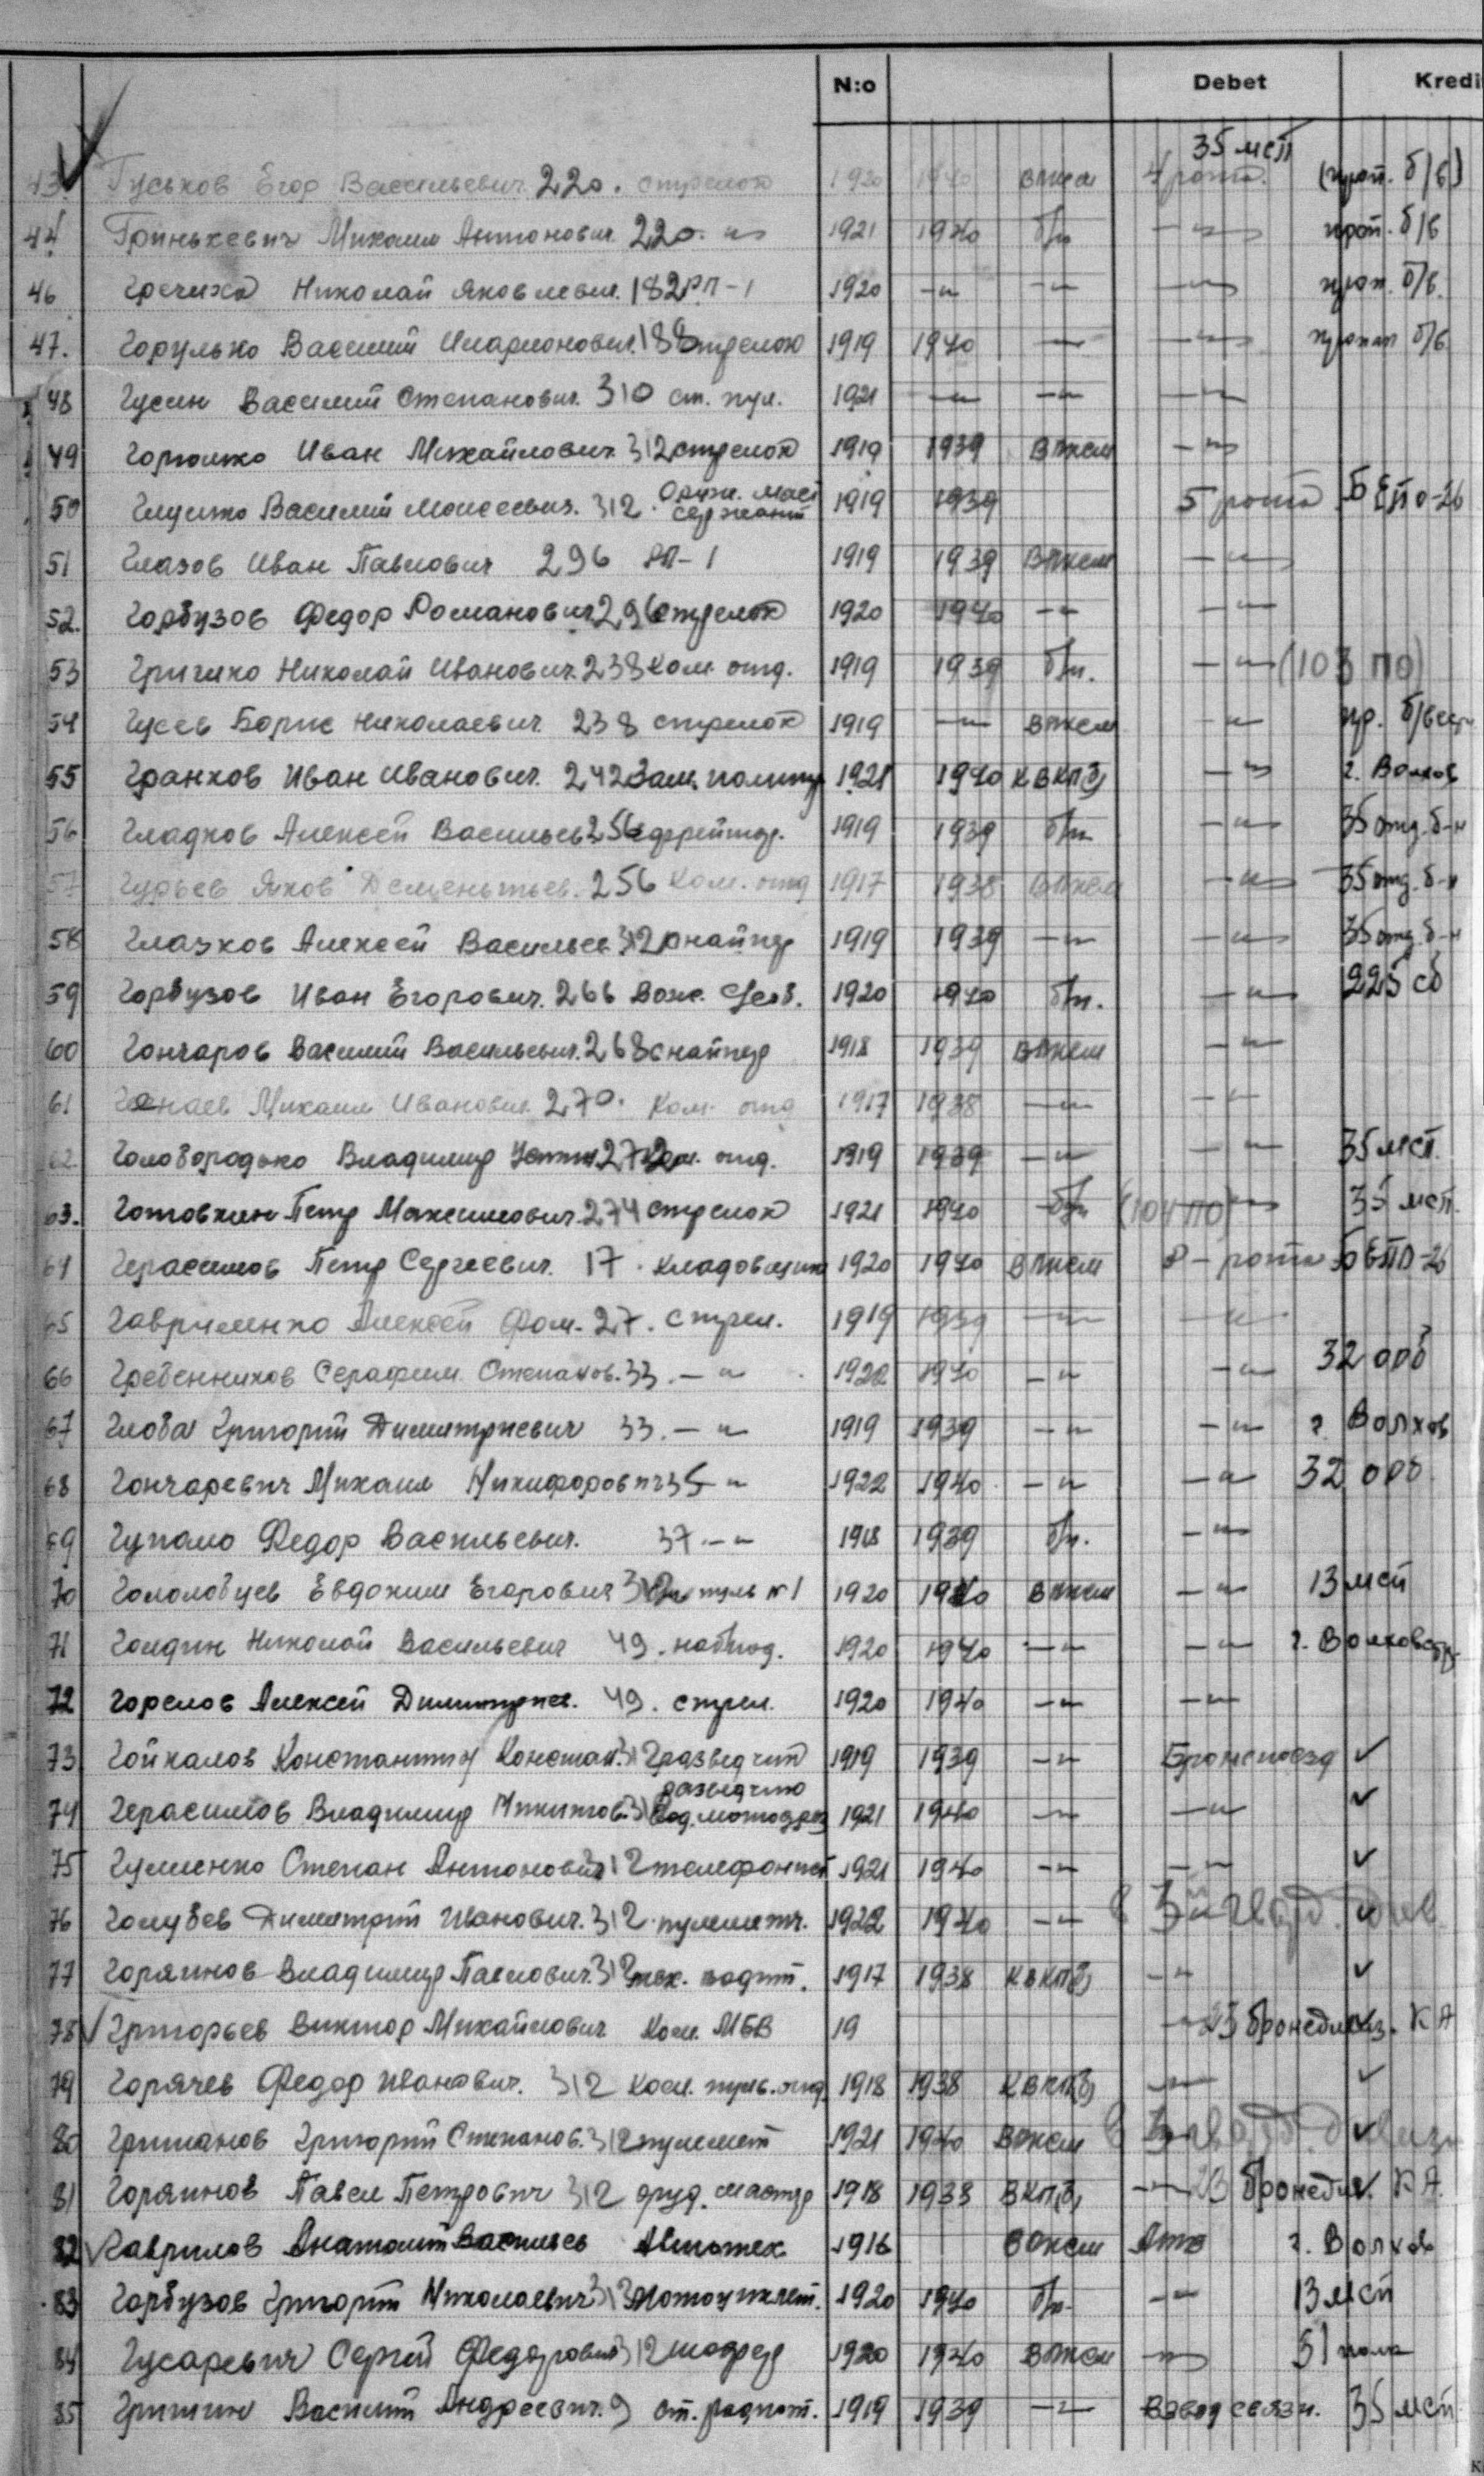 N:o Debet Kredi
35 мсп
43. Гуськов Егор Васильевич 220. стрелок 1920 1940 влксм 4 рота. (проп. б/в)
44. Гринькевич Михаил Антонович 220. -"- 1921 1940 б/п -"- проп. б/в
46 Гречиха Николай Яковлевич. 182 РП-1 1920 -"- -"- -"- проп. б/в.
47. Горулько Василий Иларионович. стрелок 1919 1940 -"- -"- пропал б/в.
48 Гусин Василий Степанович. 310 ст. пул. 1921 -"- -"- -"-
49 Иван Михайлович. 312 стрелок 1919 1939 Влксм -"-
50 Глушко Василий Моисеевич. 312. Оруж. маст 1919 1939 5 рота БЕПО-26
сержант
51 Глазов Иван Павлович 296 РП-1 1919 1939 Влксм -"-
52. Горбузов Федор Романович 296 стрелок 1920 1940 -"- -"-
53 Николай Иванович. 238 Ком. отд. 1919 1939 б/п. -"- (103 ПО)
54 Гусев Борис Николаевич. 238 стрелок 1919 -"- влксм -"- пр. б/вест
55 Гранков Иван Иванович. 242 Зам. политр 1921 1940 КВКП(б) -"- г. Волхов
56 Гладков Алексей Васильев 256 ефрейтор. 1919 1939 б/п -"- 35 отд. б-н
57 Гурьев Яков Дементьев. 256 Ком. отд 1917 1938 Влксм -"- 35 отд. б-н
58 Глазков Алексей Васильев 312 снайпер 1919 1939 -"- -"- 35 отд. б-н
59 Горбузов Иван Егорович. 266 1920 1940 б/п. -"- 225 сб
60 Гончаров Василий Васильевич. 268 снайпер 1918 1939 Влксм -"-
61 Михаил Иванович 270. Ком. отд 1917 1938 -"- -"-
62 Голобородько Владимир ком. отд. 1919 1939 -"- -"- 35 мсп.
63. Готовкин Петр Максимович. 274 стрелок 1921 1940 б/п (104 ПО) -"- 35 мсп.
64 Герасимов Петр Сергеевич. 17. кладовщик 1920 1940 Влксм 8-рота БЕПО-26
65 Гавриленко Алексей Фом. 27. стрел. 1919 1939 -"- -"-
66 Гребенников Серафим Степанов. 33. -"- 1922 1940 -"- -"- 32 орб
67 Глоба Григорий Димитриевич 33. -"- 1919 1939 -"- -"- г. Волхов
68 Гончаревич Михаил Никифорович 35 -"- 1922 1940 -"- -"- 32 орб.
69 Гупало Федор Васильевич. 37. -"- 1918 1939 б/п. -"-
70 Евдоким Егорович пуль №1 1920 1940 Влксм -"- 13 мсп
71 Голдин Николай Васильевич 49. наблюд. 1920 1940 -"- -"- г. Волховстр
72 Горелов Алексей Димитриев. 49. стрел. 1920 1940 -"- -"-
73 Гойкалов Константин Констан. 312 разведчик 1919 1939 -"- Бронепоезд ✓
разведчик
74 Герасимов Владимир Никитов. 312 1921 1940 -"- -"- ✓
75 Гуменко Степан Антонович 312 телефонист 1921 1940 -"- -"- ✓
76 Голубев Димитрий Иванович. 312. пулеметч. 1922 1940 -"- в 3й гвард. див.
77 Горяинов Владимир Павлович. 312 мех. водит. 1917 1938 КВКП(б) -"- ✓
78 ✓ Григорьев Виктор Михайлович Ком. МБВ 19 -"- 23 бронедивиз. КА
79 Горячев Федор Иванович. 312 Ком. пульв. отд 1918 1938 КВКП(б) -"- ✓
80 Григорий Степанов. 312 пулемет 1921 1940 Влксм в 3 гвард. дивиз
81 Горяинов Павел Петрович 312 оруд. мастер 1918 1938 ВКП(б) -"- 23 бронедив. КА.
82 ✓ Гаврилов Анатолий Васильев Автотех 1916 Влксм Авто г. Волхов
83 Горбузов Григорий Николаевич 312 Мотоциклет. 1920 1940 б/п. -"- 13 мсп
84 Гусаревич Сергей Федорович 312 шофер 1920 1940 Влксм -"- 51 полк
85 Гришин Василий Андреевич. 9 ст. радист. 1919 1939 -"- Взвод связи. 35 мсп